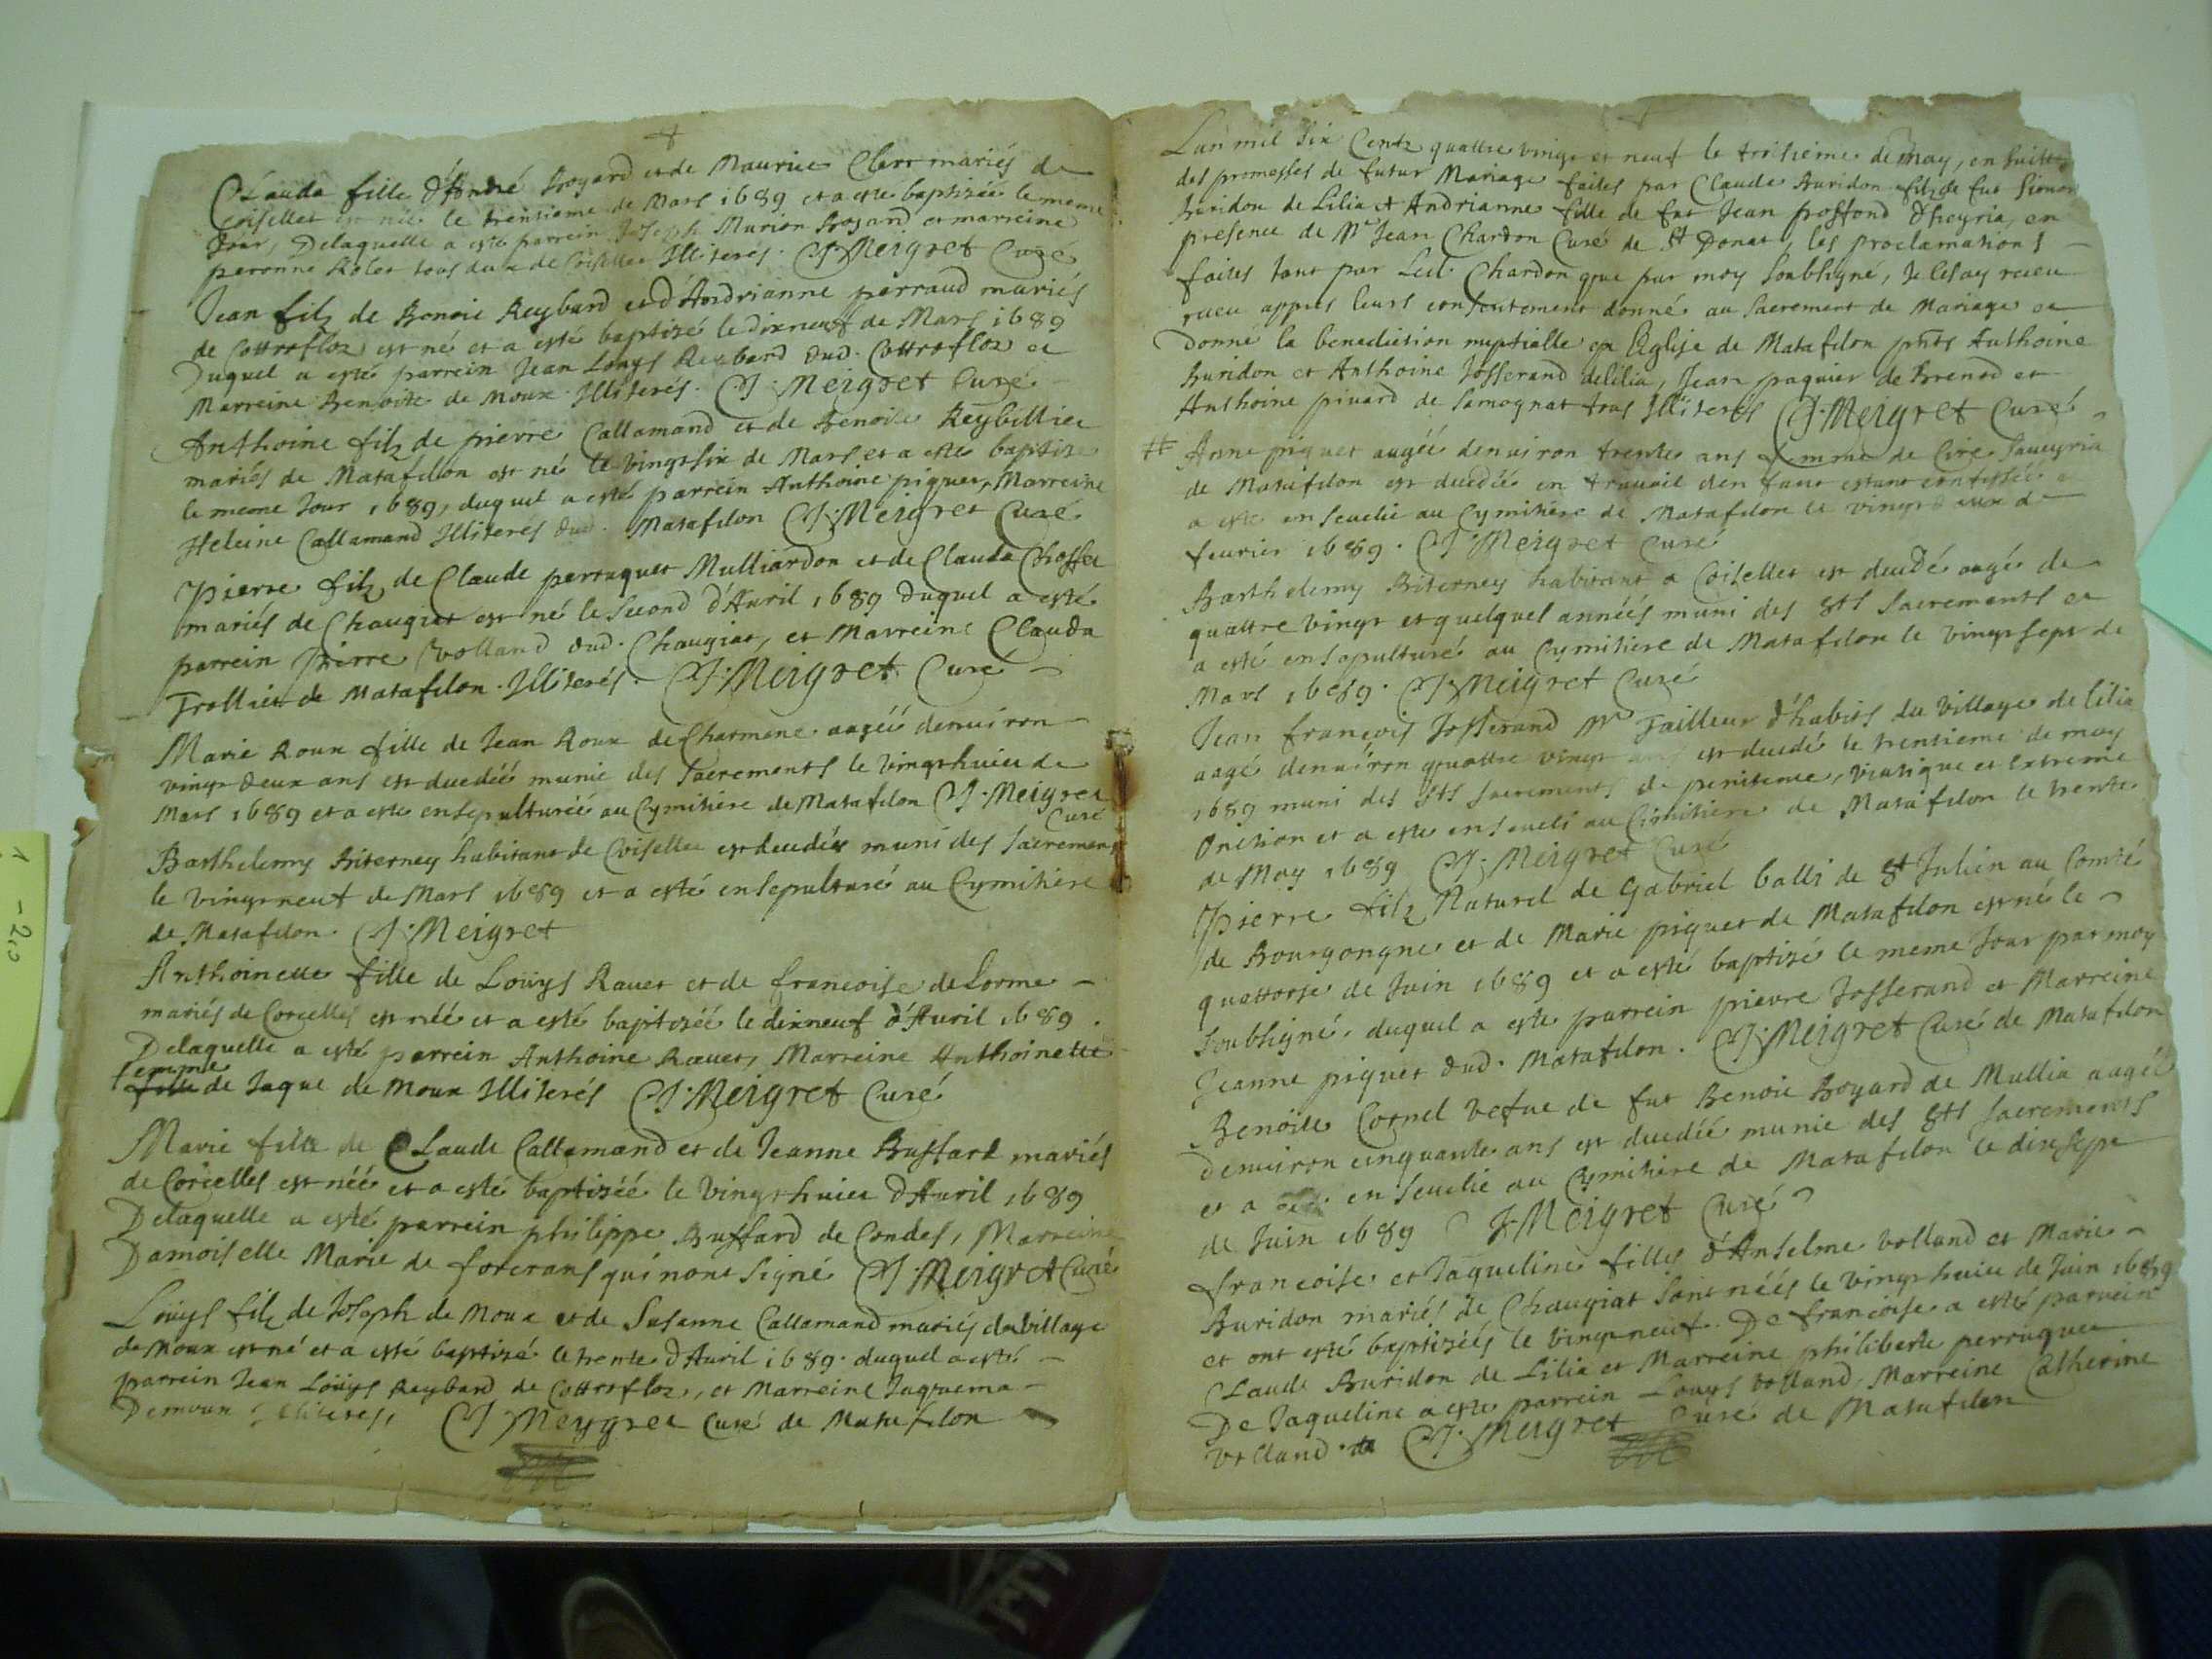 Clauda fille d'André Boyard et de Maurice Clerc mariés de
Coiselles est née le trentieme de Mars 1689 et a este baptizée le meme
Jour, Delaquelle a esté parrein Joseph Marion Boyard et marreine
peronne tous deux de Coiselles Illiterés. J. Meigret Curé
Jean filz de Benoie Reybard et d'Andrianne perraud mariés
de Cottrofloz est né et a esté baptizé le dixneuf de Mars 1689
Duquel a esté parrein Jean Louys Reybard dud. Cottrofloz et
Marreine Benoite de Moux. Illiterés. J. Meigret Curé
Anthoine filz de pierre Callamand et de Benoite Reybillier
mariés de Matafelon est né le Vingtsix de Mars et a este baptize
le meme Jour 1689, duquel a esté parrein Anthoine piquet, Marreine
Heleine Callamand Illiteres dud. Matafelon J. Meigret Curé
Pierre filz de Claude perruquet Mulliardon et de Clauda Chosset
mariés de Chaugiat est né le Second d'Auril 1689 duquel a esté
parrein pierre Volland dud. Chaugiat, et Marreine Clauda
Trollier de Matafelon. Illiterés. J. Meigret Curé
Marie Roux fille de Jean Roux de Charmene aagéé denuiron
vingt deux ans est decedéé munie des Sacrements le Vingthuict de
Mars 1689 et a este ensepulturéé au Cymitiere de Matafelon J. Meigret
Curé
Barthelemy Biterney habitant de Coiselles est decedés muni des Sacrements
le vingtneuf de Mars 1689 et a esté ensepulturé au Cymitiere
de Matafelon. J. Meigret
Anthoinette fille de Louys Rauet et de francoise de Lorme
mariés de Corcelles est néé et a esté baptizéé le dixneuf d'Auril 1689.
Delaquelle a esté parrein Anthoine Rauet, Marreine Anthoinette
femme
fille de Jaque de Moux Illiterés J. Meigret Curé
Marie fille de Claude Callamand et de Jeanne Buffard mariés
de Corcelles est néé et a esté baptizéé le Vingthuict d'Auril 1689
Delaquelle a esté parrein philippe Buffard de Condes, Marreine
Damoiselle Marie de forcrans qui n'ont Signé J. Meigret Curé
Louys filz de Joseph de Moux et de Susanne Callamand mariés du Village
de Moux est né et a esté baptizé le trente d'Auril 1689. duquel a esté
parrein Jean Louys Reybard de Cottrofloz, et Marreine Jaquema
Demoux Illiteres, J. Meygret Curé de Matafelon
Lan mil Six Centz quattre vingt et neuf le troisieme de may, en Suitte
des promesses de futur Mariage faites par Claude Buridon filz de fut Simon
Buridon de Lilia et Andrianne fille de fut Jean poffond d'heyria, en
presence de Mre Jean Chardon Curé de St Donat, les proclamations
faites tant par Led. Chardon que par moy Soubsigné, Je les ay receu
receu appres leurs consentement donné au Sacrement de Mariage et
Donné la benediction nuptialle en Leglise de Matafelon pnts Anthoine
Buridon et Anthoine Josserand de lilia, Jean paquier de Brenod et
Anthoine piuard de Samognat tous Illiterés J. Meigret Curé
# Anne piquet aagéé denuiron trente ans femme de Cire Saueyria
de Matafelon est decedéé en trauail denfant estant confesséé et
a este enseuelie au Cymitiere de Matafelon le vingtdeux de
feurier 1689. J. Meigret Curé
Barthelemy Biterney habitant a Coiselles est decedé aagé de
quattre vingt et quelques annéés muni des Sts Sacrements et
a esté ensepulturé au Cymitiere de Matafelon le Vingtsept de
Mars 1689. J. Meigret Curé
Jean francois Josserand Mre Tailleur d'habits du Village de lilia
aagé denuiron quattre vingt ans est decedé le trentieme de may
1689 muni des Sts Sacrements de penitence, viatique et extreme
Onction et a este enseueli au Cimitiere de Matafelon le trente
de May 1689 J. Meigret Curé
Pierre filz Naturel de Gabriel balli de St Julien au Comté
de Bourgongne et de Marie piquet de Matafelon est né le
quattorse de Juin 1689 et a esté baptizé le meme Jour par moy
Soubsigné, duquel a este parrein pierre Josserand et Marreine
Jeanne piquet dud. Matafelon. J. Meigret Curé de Matafelon
Benoite Cornel vefue de fut Benoie Boyard de Mullia aagéé
denuiron cinquante ans est decedéé munie des Sts Sacrements
et a esté enseuelie au Cymitiere de Matafelon le dixsept
de Juin 1689 J. Meigret Curé
francoise et Jaqueline filles d'Anselme Volland et Marie
Buridon mariés de Chaugiat sont néés le Vingthuict de Juin 1689
et ont esté baptizéés le Vingtneuf. De francoise a esté parrein
Claude Buridon de Lilia et Marreine philiberte perruquet
De Jaqueline a este parrein Louys Volland, Marreine Catherine
Volland. J. Meigret Curé de Matafelon